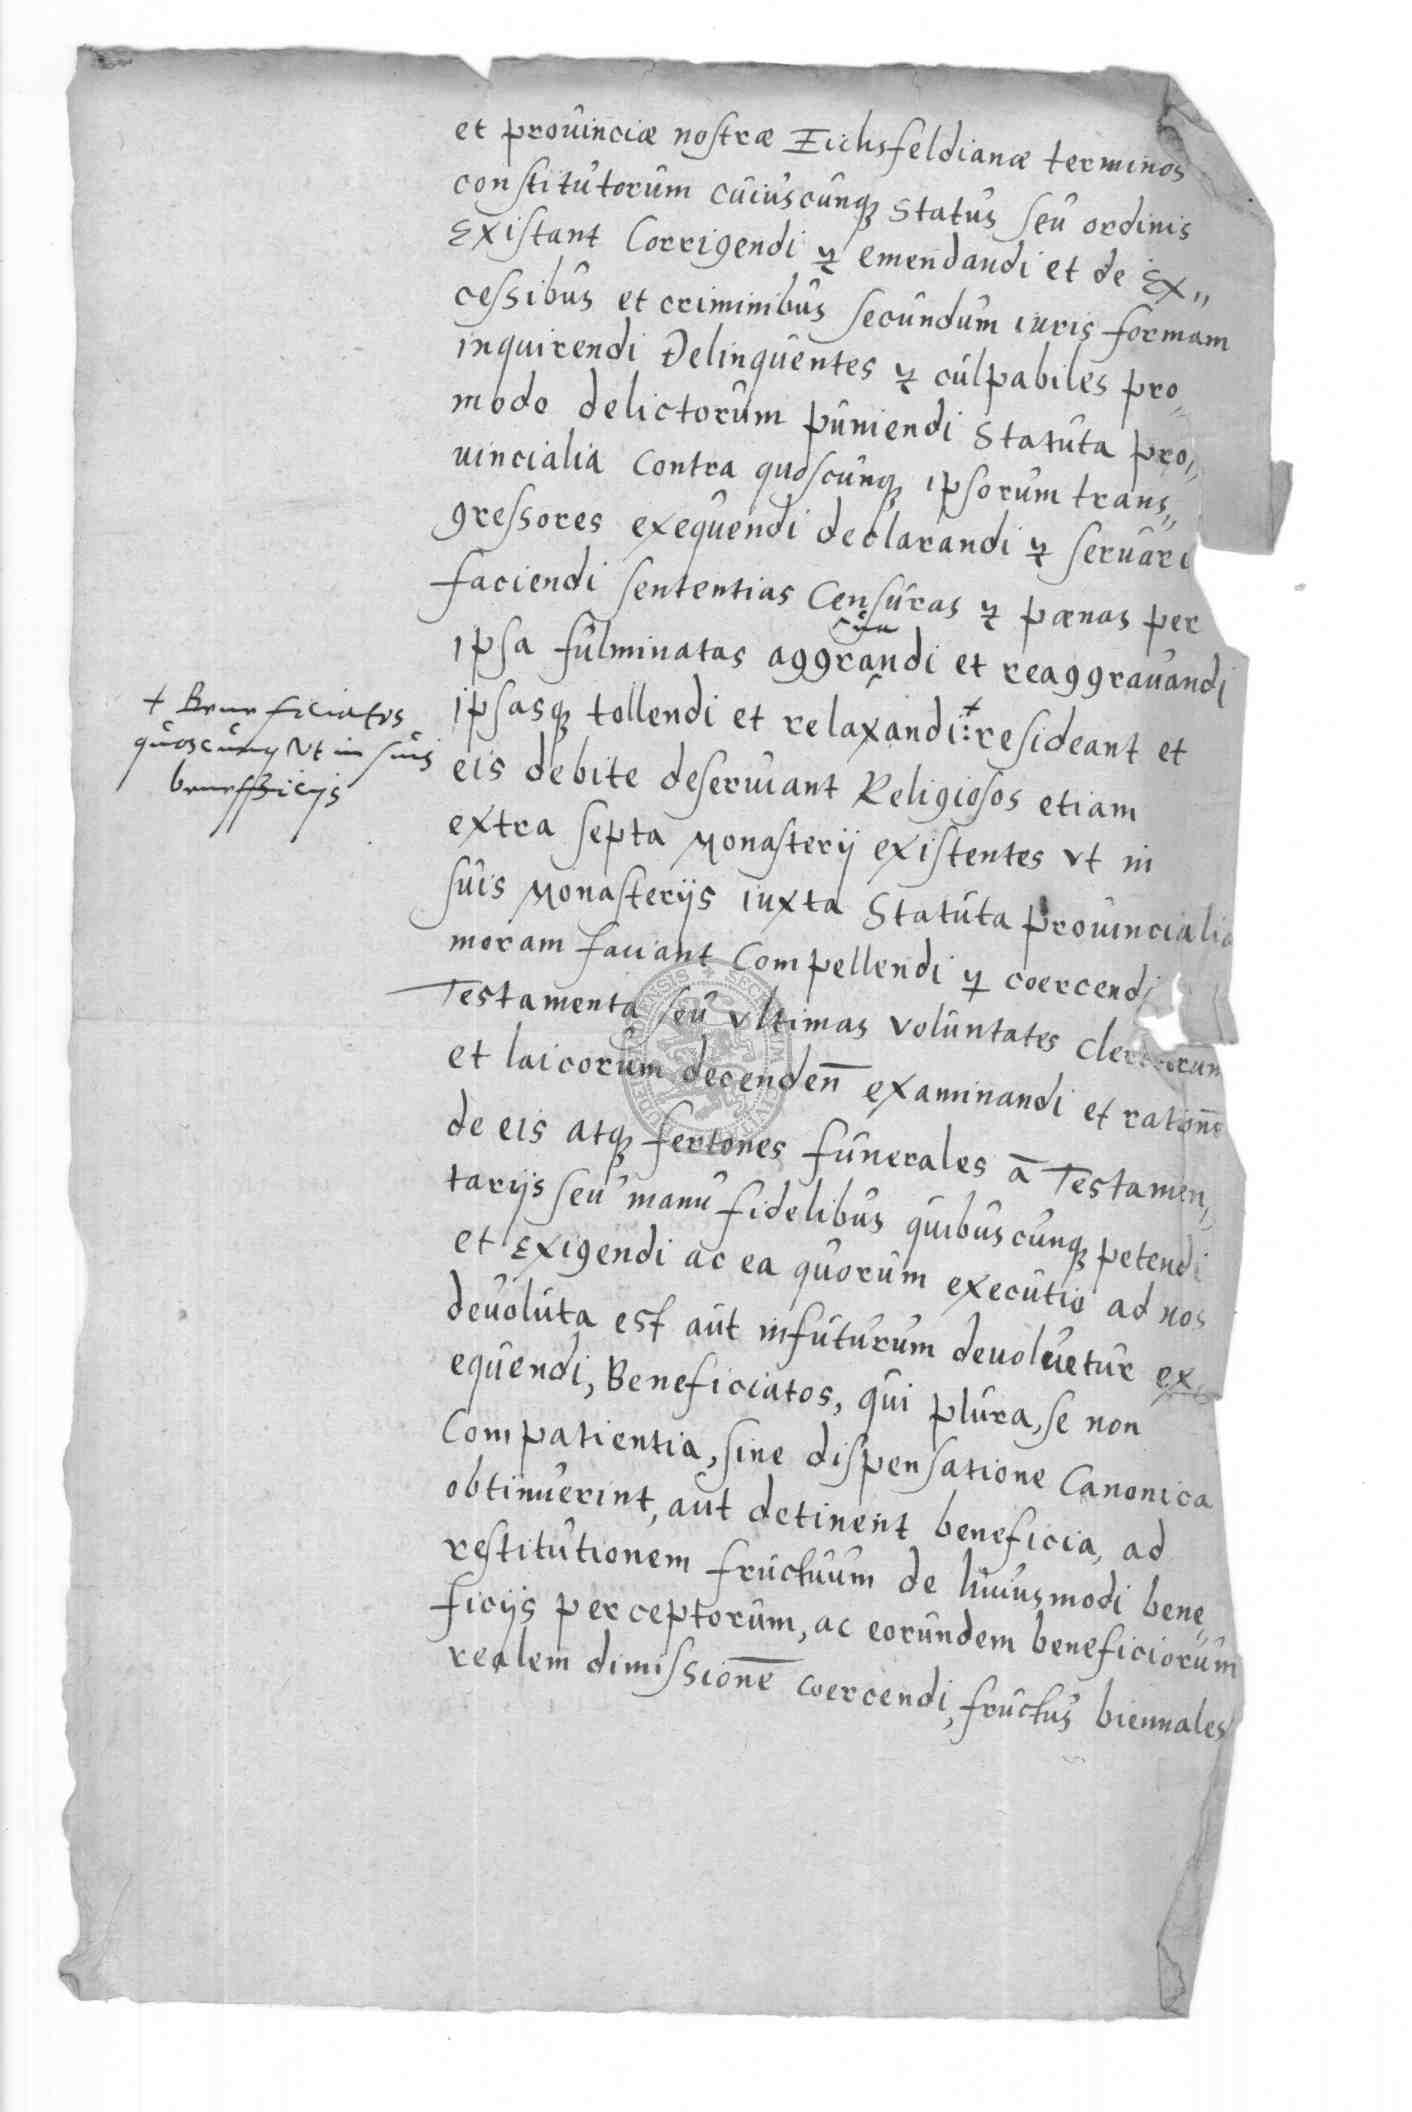 et prouinciæ nostræ Eichsfeldianæ terminos
constitutorum cuiuscunq; status seu ordinis
Existant Corrigendi & emendandi et de Ex„
cessibus et criminibus secundum iuris formam
inquirendi Delinquentes & culpabiles pro
modo delictorum puniendi Statuta pro„
uincialia contra quoscunq; ipsorum trans„
gressores exequendi declarandi & seruari
faciendi sententias Censuras & pœnas per
ipsa fulminatas aggrandi et reaggrauandi
ipsasq; tollendi et relaxandi:+ resideant et
+ Beneficiatos
quoscunq; Vt in suis
beneficijs
eis debite deseruiant Religiosos etiam
extra septa Monasterij existentes vt in
suis Monasterijs iuxta Statuta prouincialia
moram faciant Compellendi & coercendi
Testamenta seu vltimas voluntates clericorum
et laicorum decendeñ examinandi et rationē
de eis atq; fertones funerales à Testamen„
tarijs seu manu fidelibus quibuscunq; petendi
et Exigendi ac ea quorum executio ad nos
deuoluta est aut infuturum deuoluetur ex„
equendi, Beneficiatos, qui plura, se non
Compatientia, sine dispensatione Canonica
obtinuerint, aut detinent beneficia, ad
restitutionem fructuum de huiusmodi bene„
ficijs perceptorum, ac eorundem beneficiorum
realem dimissionē coercendi, fructus biennales